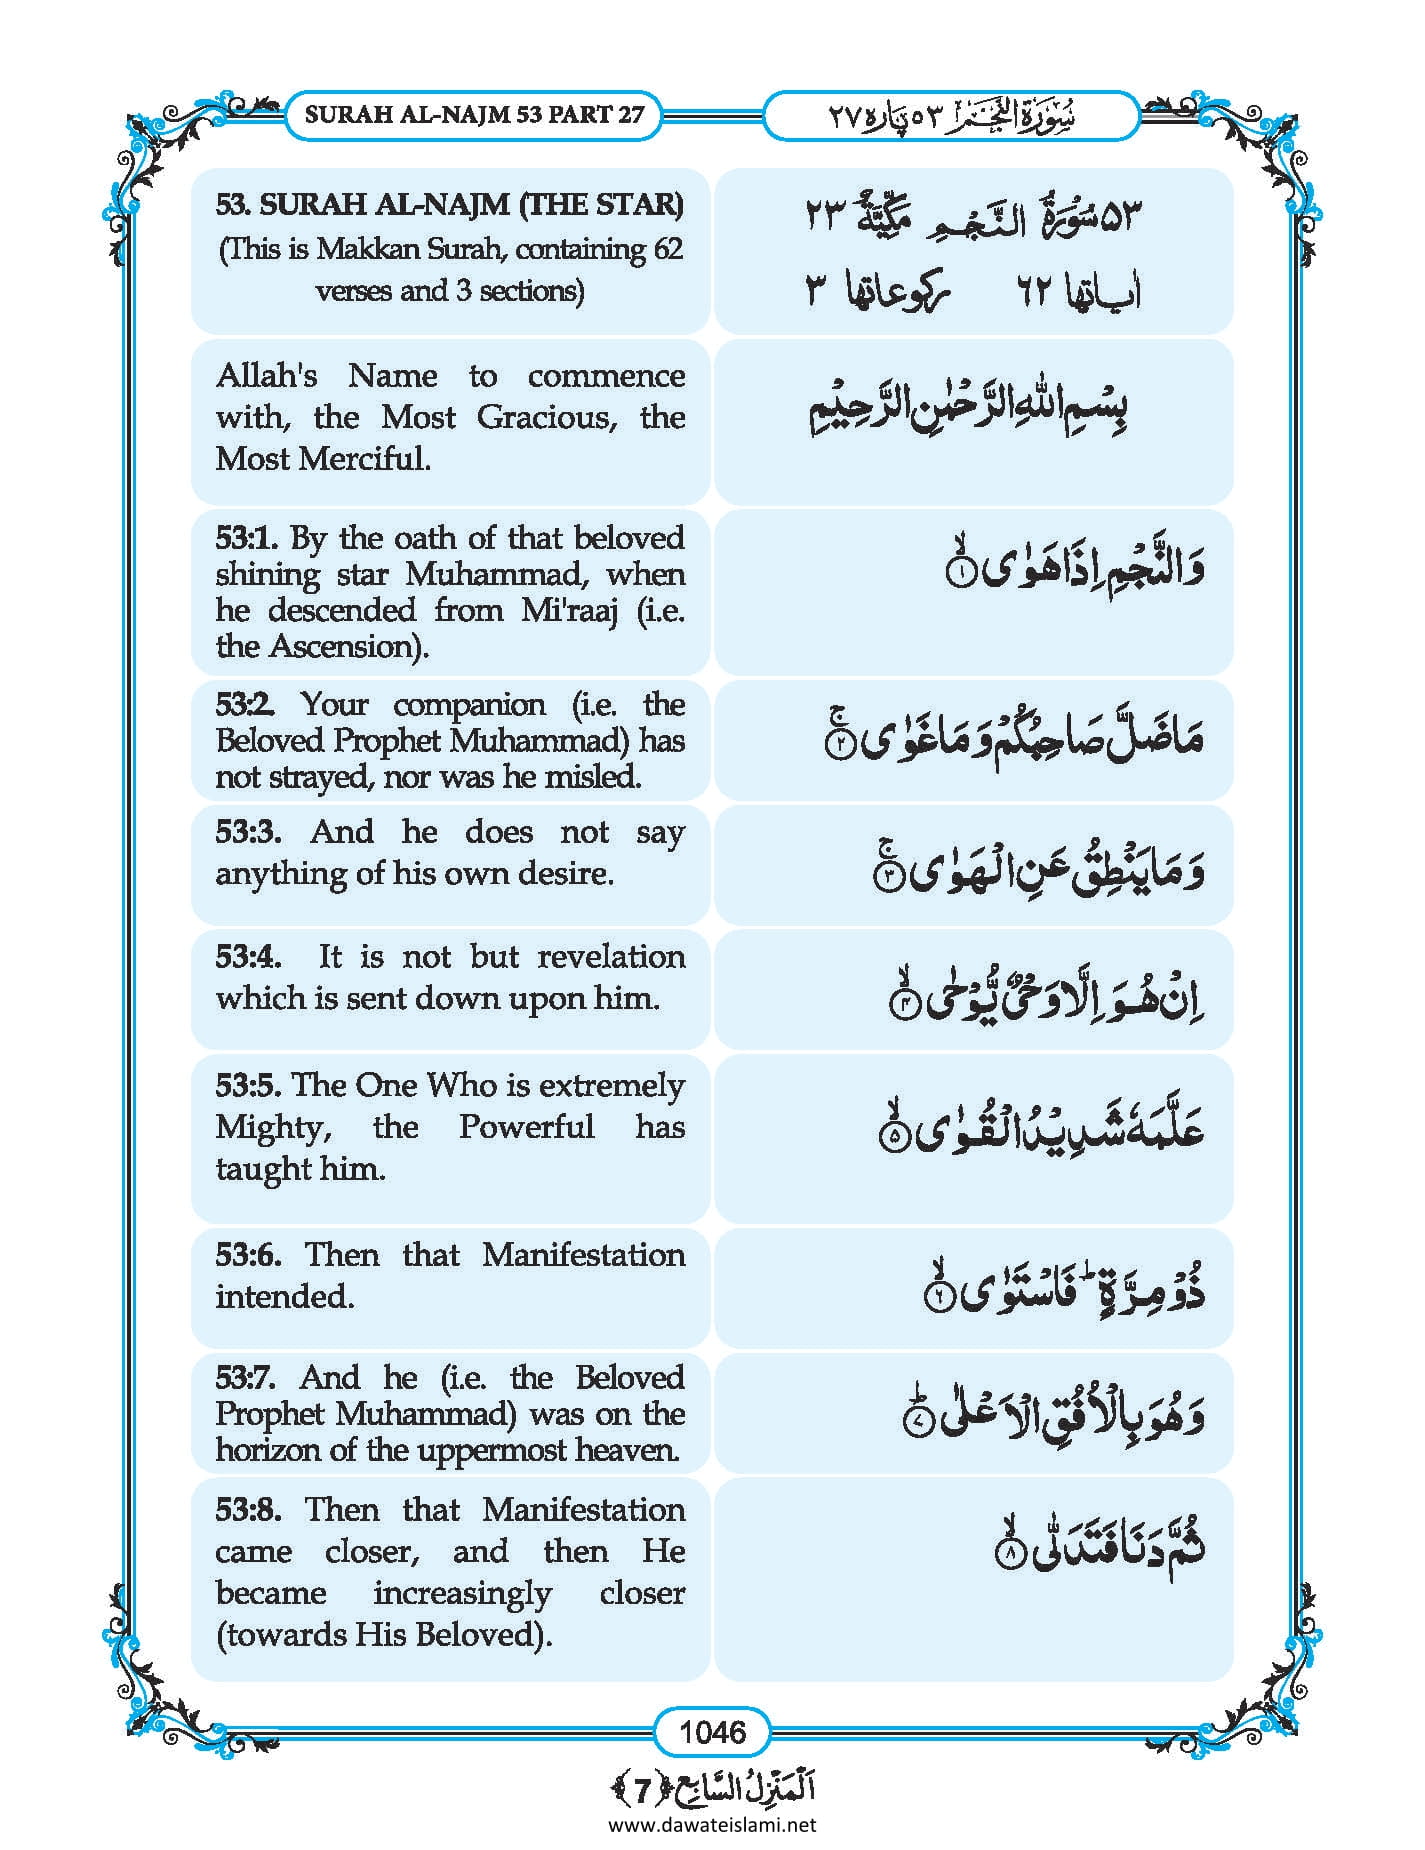 SURAH AL-NAJM 53 PART 27
سُوۡرَةُ النَّجۡمِ ٥٣ پَارہ ٢٧
53. SURAH AL-NAJM (THE STAR)
(This is Makkan Surah, containing 62
verses and 3 sections)
٥٣ سُوۡرَةُ النَّجۡمِ مَكِّيَّةٌ ٢٣
اياتها ٦٢ ركوعاتها ٣
Allah's Name to commence
with, the Most Gracious, the
Most Merciful.
بِسْمِ اللّٰهِ الرَّحْمٰنِ الرَّحِيْمِ
53:1. By the oath of that beloved
shining star Muhammad, when
he descended from Mi'raaj (i.e.
the Ascension).
وَالنَّجْمِ اِذَا هَوٰى ۙ﴿۱﴾
53:2. Your companion (i.e. the
Beloved Prophet Muhammad) has
not strayed, nor was he misled.
مَا ضَلَّ صَاحِبُكُمْ وَ مَا غَوٰى ۚ﴿۲﴾
53:3. And he does not say
anything of his own desire.
وَ مَا يَنْطِقُ عَنِ الْهَوٰى ۚ﴿۳﴾
53:4. It is not but revelation
which is sent down upon him.
اِنْ هُوَ اِلَّا وَحْیٌ يُّوْحٰى ۙ﴿۴﴾
53:5. The One Who is extremely
Mighty, the Powerful has
taught him.
عَلَّمَهٗ شَدِيْدُ الْقُوٰى ۙ﴿۵﴾
53:6. Then that Manifestation
intended.
ذُوْ مِرَّةٍ ؕ فَاسْتَوٰى ۙ﴿۶﴾
53:7. And he (i.e. the Beloved
Prophet Muhammad) was on the
horizon of the uppermost heaven.
وَ هُوَ بِالْاُفُقِ الْاَعْلٰى ؕ﴿۷﴾
53:8. Then that Manifestation
came closer, and then He
became increasingly closer
(towards His Beloved).
ثُمَّ دَنَا فَتَدَلّٰى ۙ﴿۸﴾
1046
اَلْمَنْزِلُ السَّابِع ﴿7﴾
www.dawateislami.net